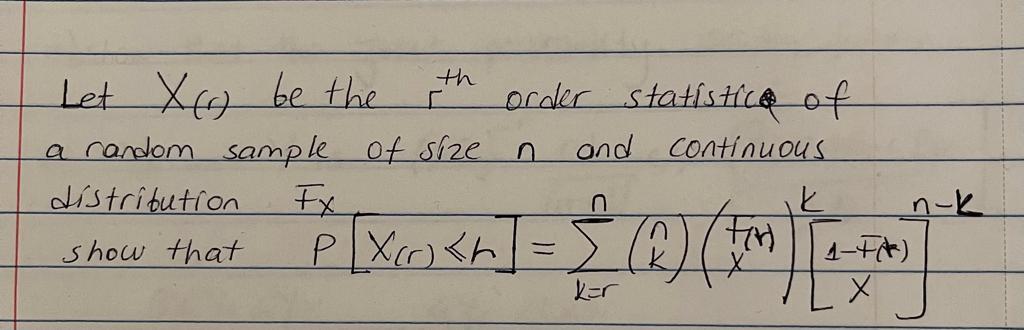 Let X(r) be the rth order statistic of
a random sample of size n and continuous
distribution Fx
show that P[X(r) < h] = n Σ k=r (n k) (F(h) x)^k [1-F(h) x]^n-k